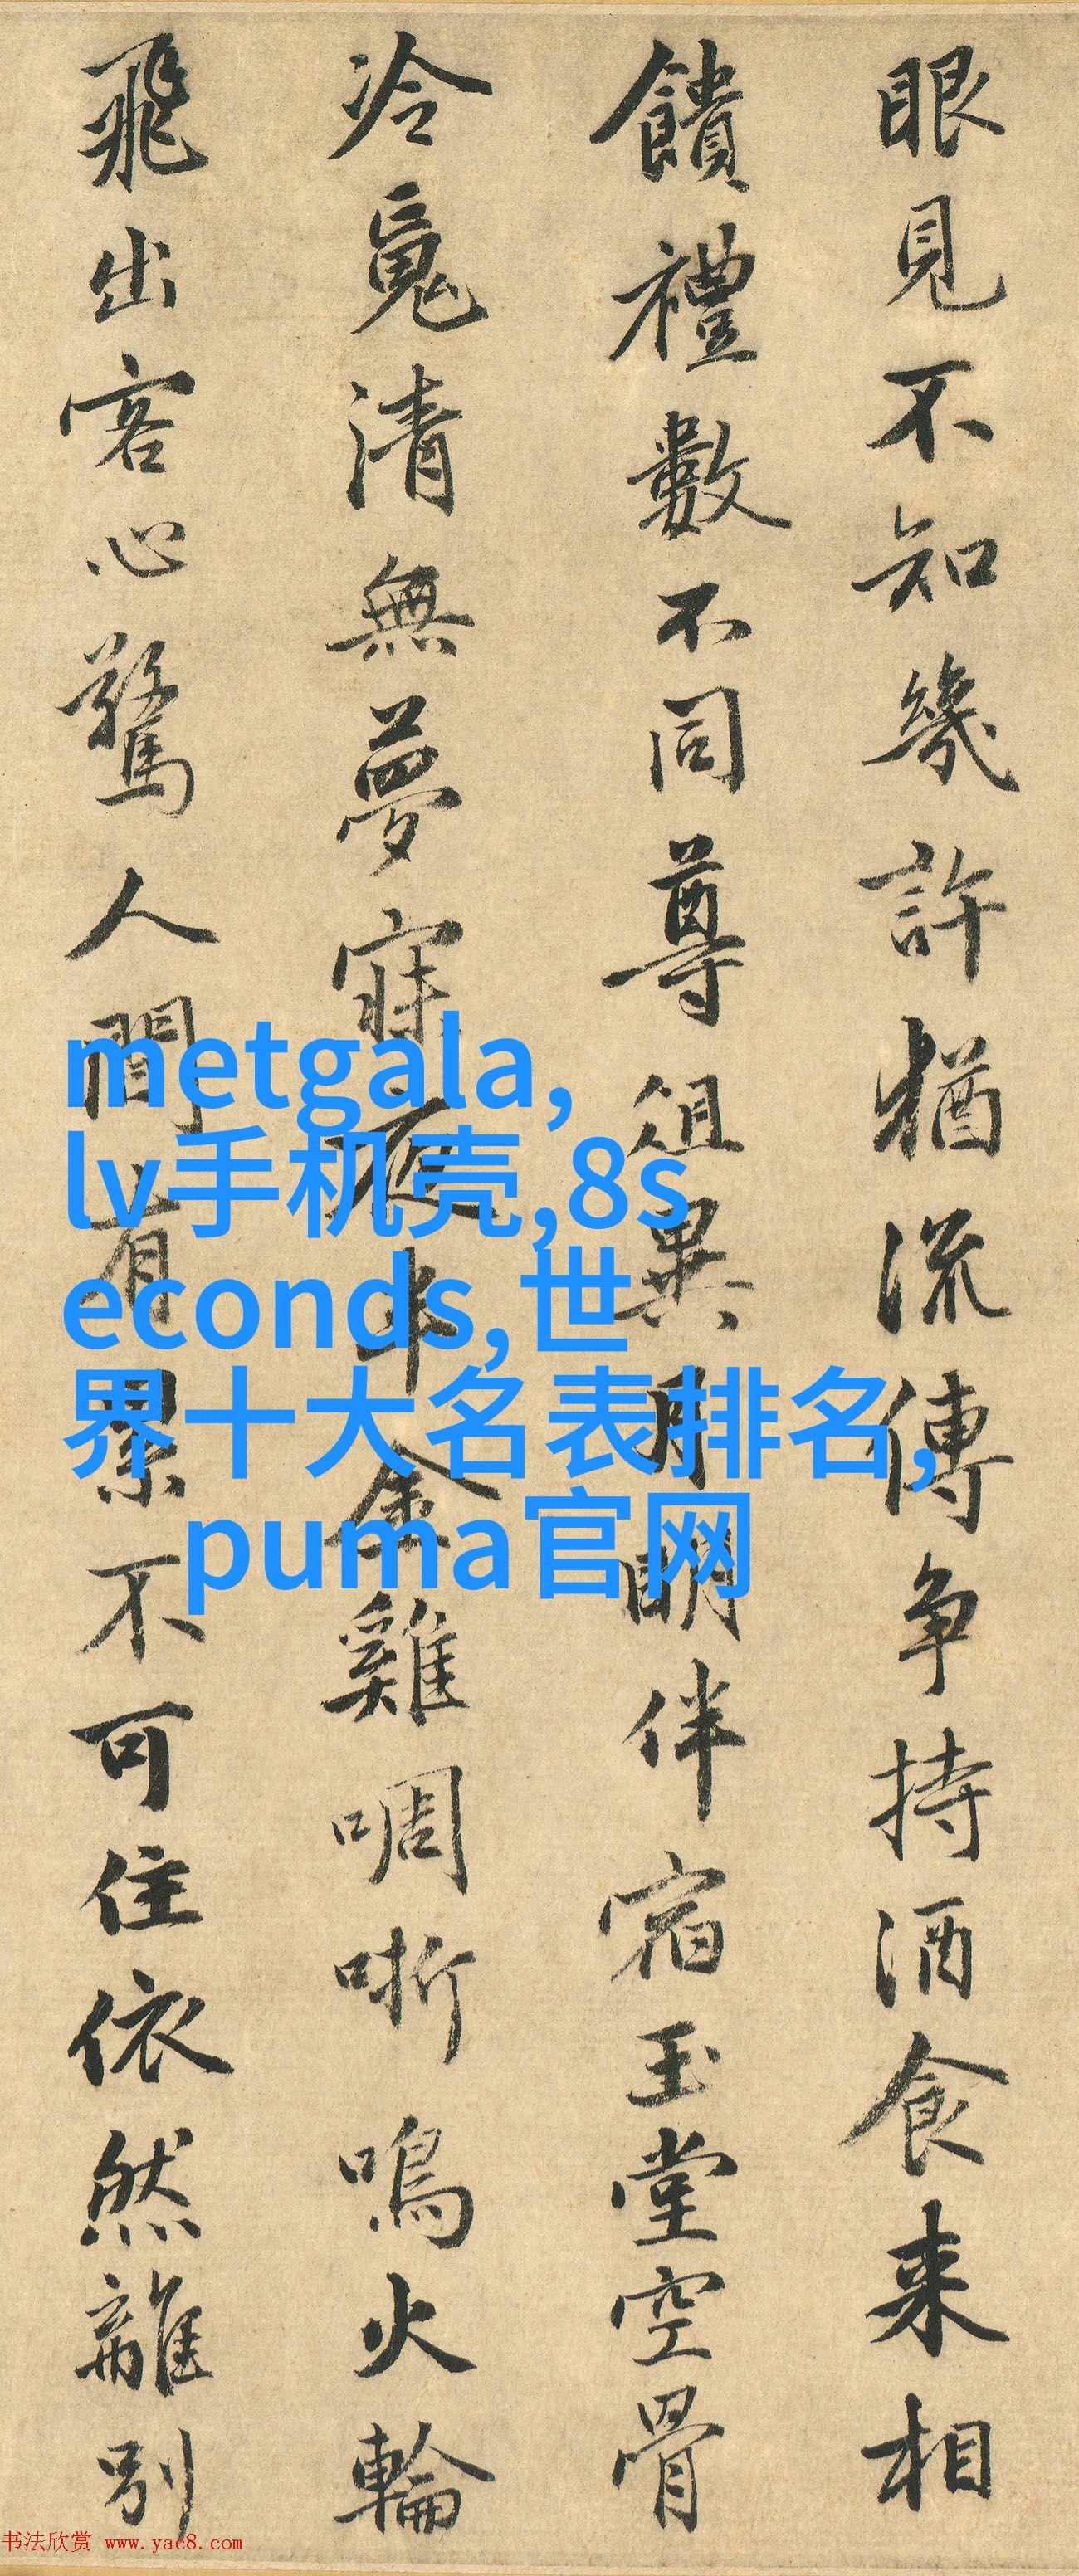 眼見不知幾許猶流傳争持酒食来相
饋禮數不同尊俎異明伴宿玉堂空骨
冷覓清無夢寐夜半金雞啁哳鳴火輪
飛出客心驚人間有累不可住依然離別
metgala,
lv手机壳,8s
econds,世
界十大名表排名,
puma官网
书法欣赏 www.yac8.com